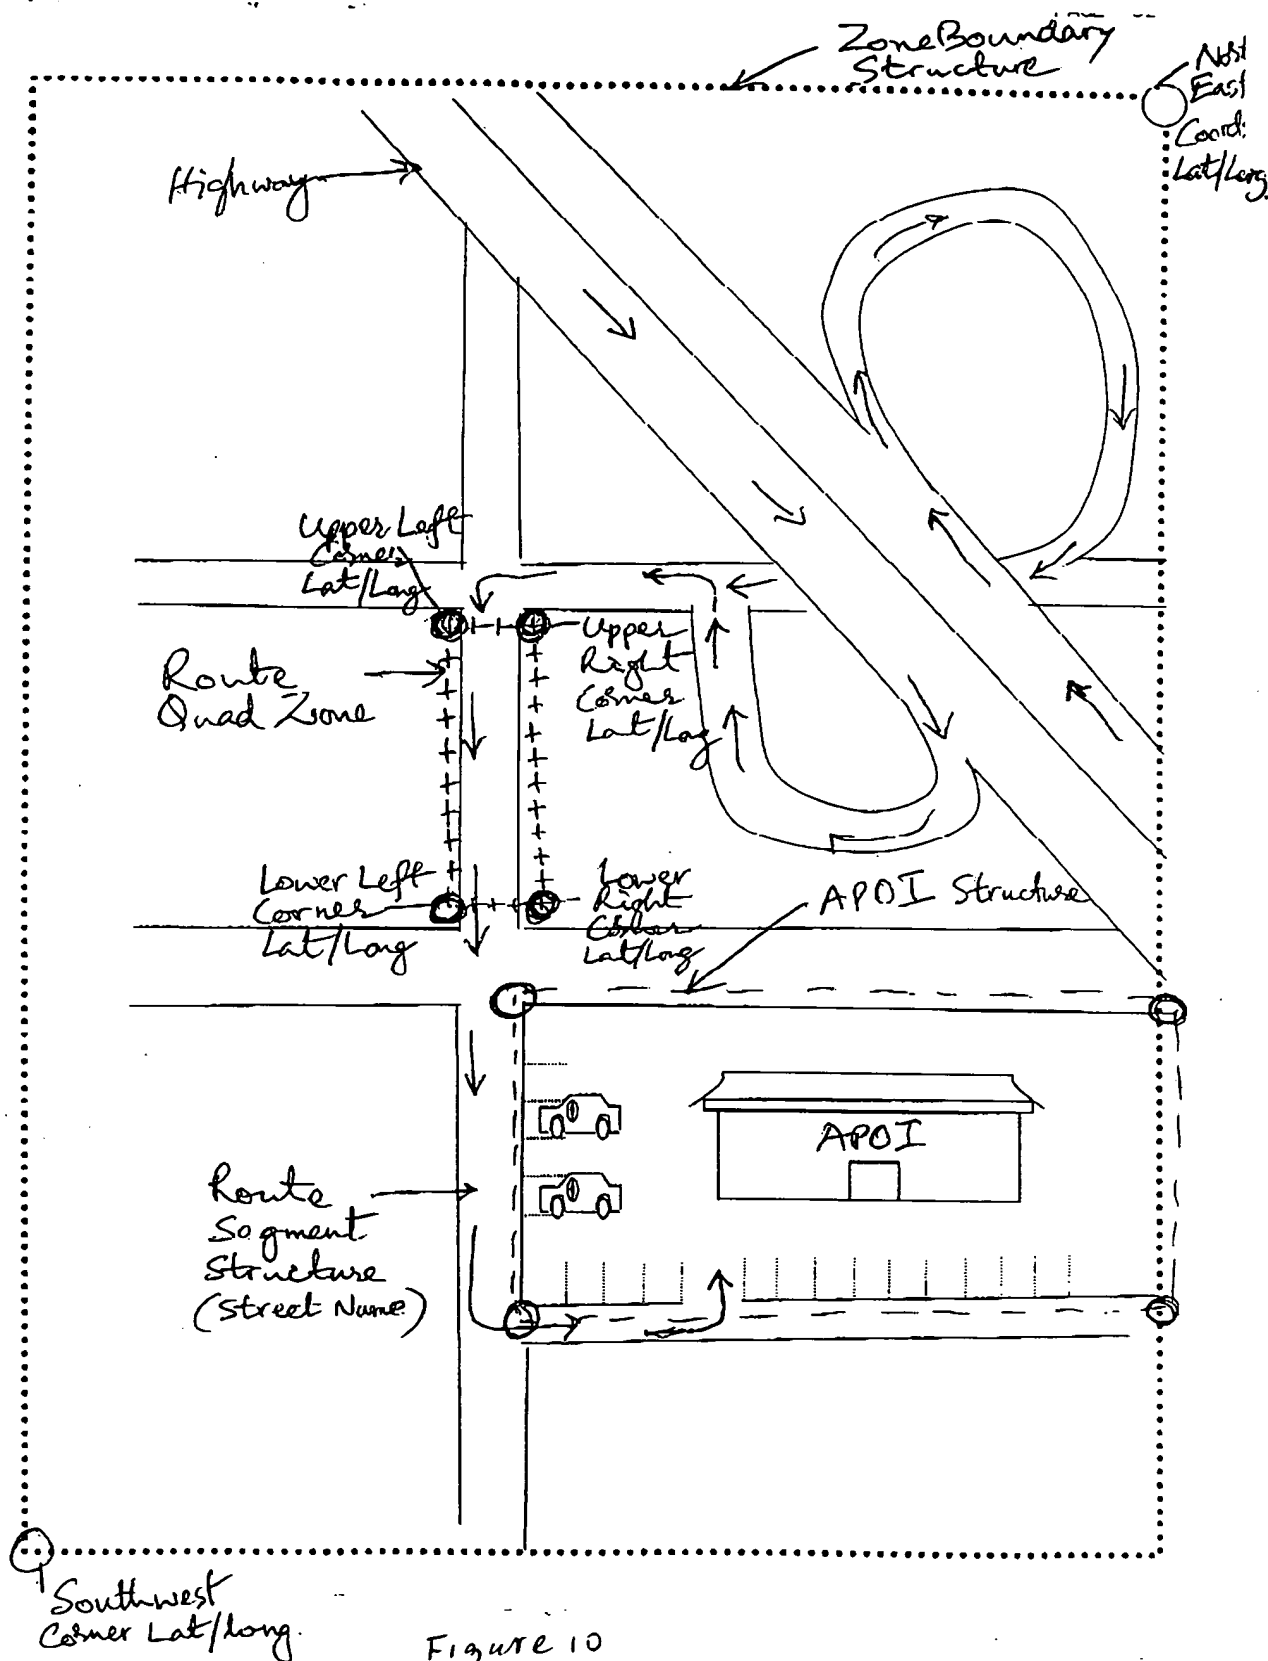 Zone Boundary
Structure
North
East
Coord:
Lat/Long
Highway
Upper Left
Corner
Lat/Long
Upper
Right
Corner
Lat/Long
Route
Quad Zone
Lower Left
Corner
Lat/Long
Lower
Right
Corner
Lat/Long
APOI Structure
APOI
Route
Segment
Structure
(Street Name)
Southwest
Corner Lat/Long.
Figure 10